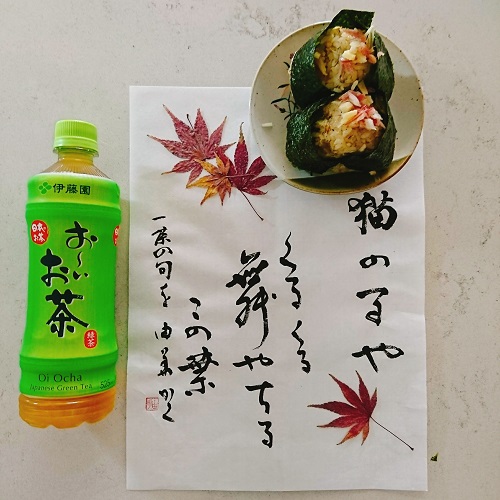 伊藤園
お～い
お茶
緑茶
Oi Ocha
Japanese Green Tea
猫の子や
くるくる
舞やちる
この葉
一茶の句を 由美かく